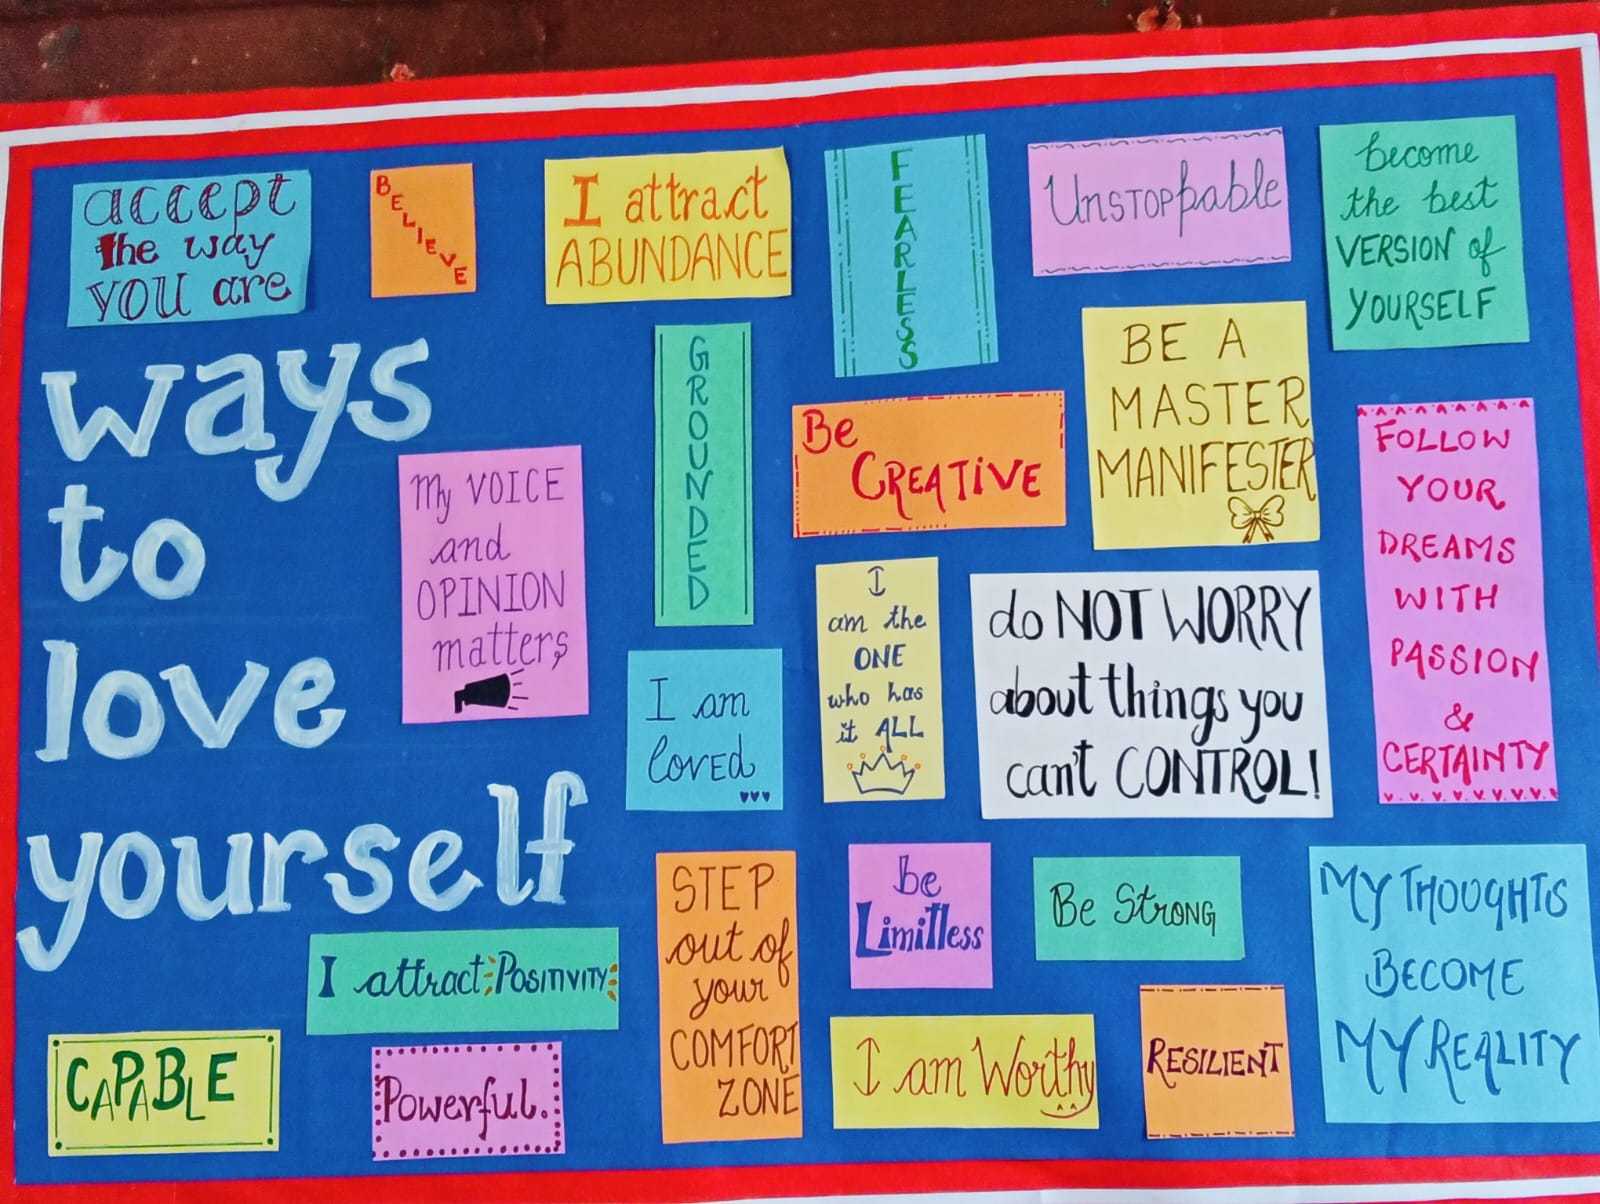 ways
to
love
yourself
accept
the way
YOU are
BELIEVE
I attract
ABUNDANCE
FEARLESS
UNSTOPpable
become
the best
VERSION of
YOURSELF
GROUNDED
Be
CREATiVE
BE A
MASTER
MANIFESTER
FOLLOW
YOUR
DREAMS
WITH
PASSION
&
CERTAINTY
My VOICE
and
OPINION
matters
I am
loved
I
am the
ONE
who has
it ALL
do NOT WORRY
about things you
can't CONTROL!
STEP
out of
your
COMFORT
ZONE
be
Limitless
Be STRONG
MY THOUGHTS
BECOME
MY REALITY
I attract POSITIVITY
CAPABLE
Powerful.
I am Worthy
RESILIENT